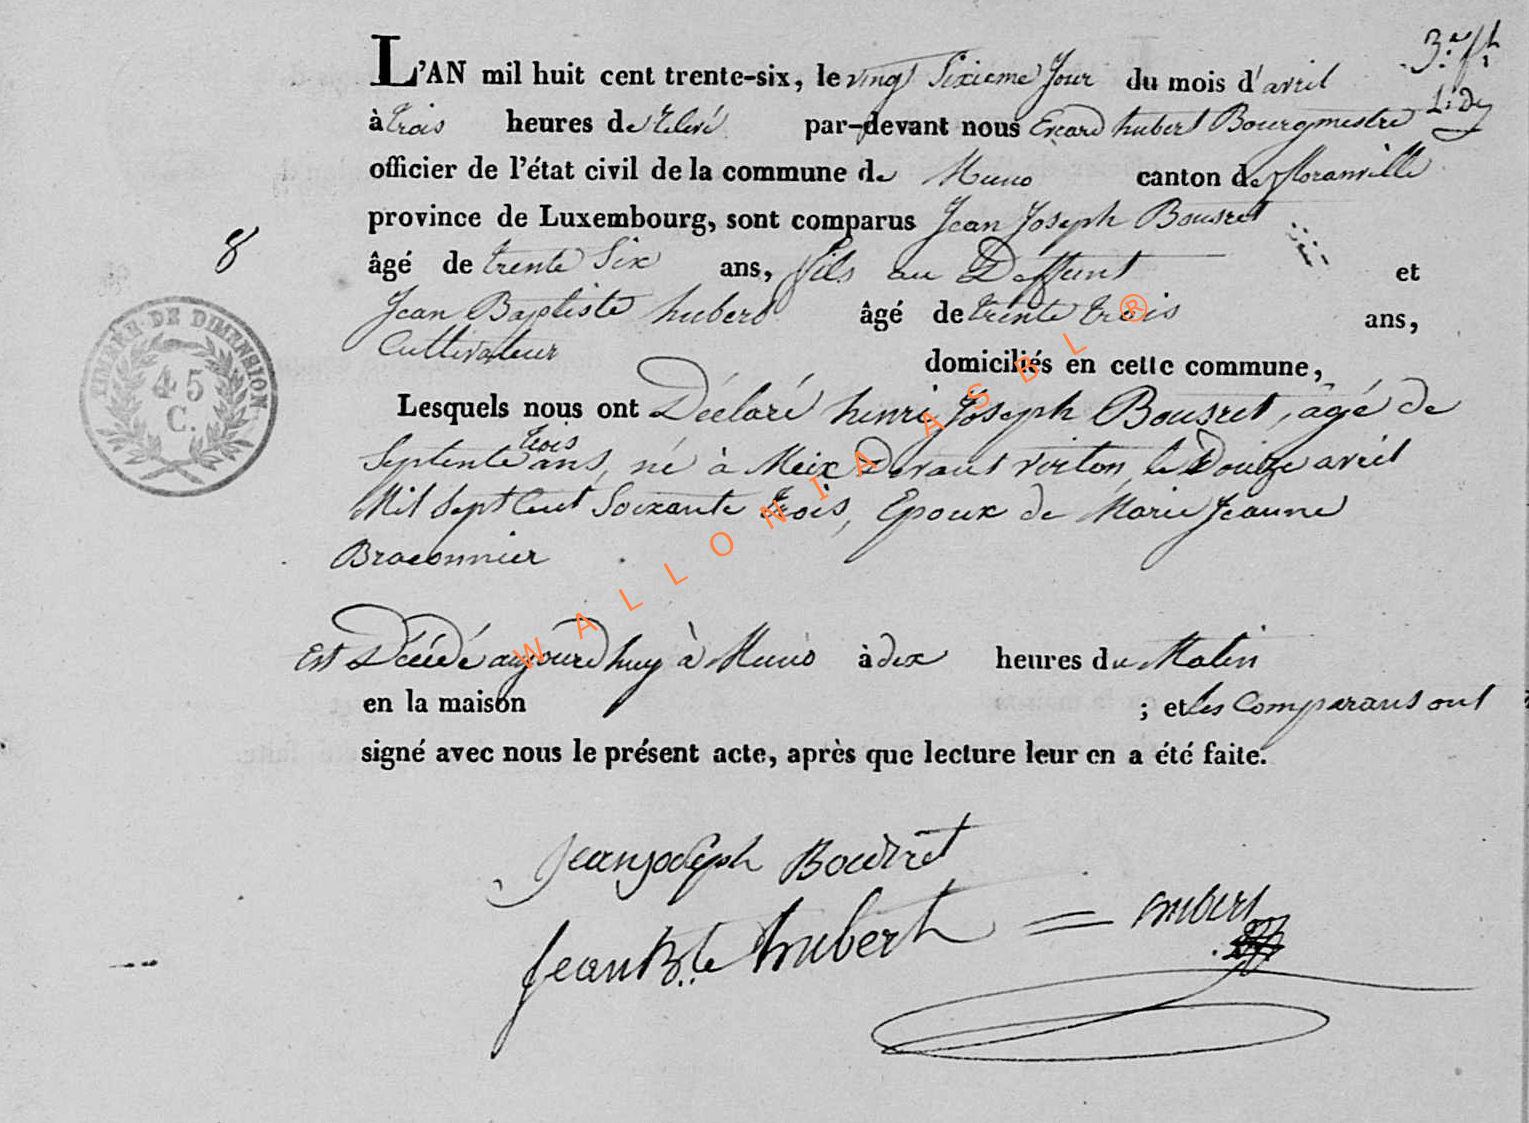 3.e f.t
L'AN mil huit cent trente-six, le vingt Sixieme Jour du mois d'avril
1.r D.
à trois heures de relevé par-devant nous Evrard hubert Bourgmestre
officier de l'état civil de la commune de Muno canton de floranville
province de Luxembourg, sont comparus Jean Joseph Bousret
8
âgé de trente Six ans, fils au Deffunt et
Jean Baptiste hubert âgé de trente trois ans,
Cultivateur domiciliés en cette commune,
TIMBRE DE DIMENSION.
45
C.
Lesquels nous ont Déclaré henri Joseph Bousret, agé de
Septente trois ans, né à Meix Devant virton, le Douze avril
Mil Sept Cent Soixante trois, Epoux de Marie Jeanne
Braconnier
Est Décédé aujourdhuy à Muno à dix heures du Matin
en la maison ; et les Comparans ont
signé avec nous le présent acte, après que lecture leur en a été faite.
Jean joseph Bousret
Jean B.te hubert = hubert
WALLONIA ASBL ®